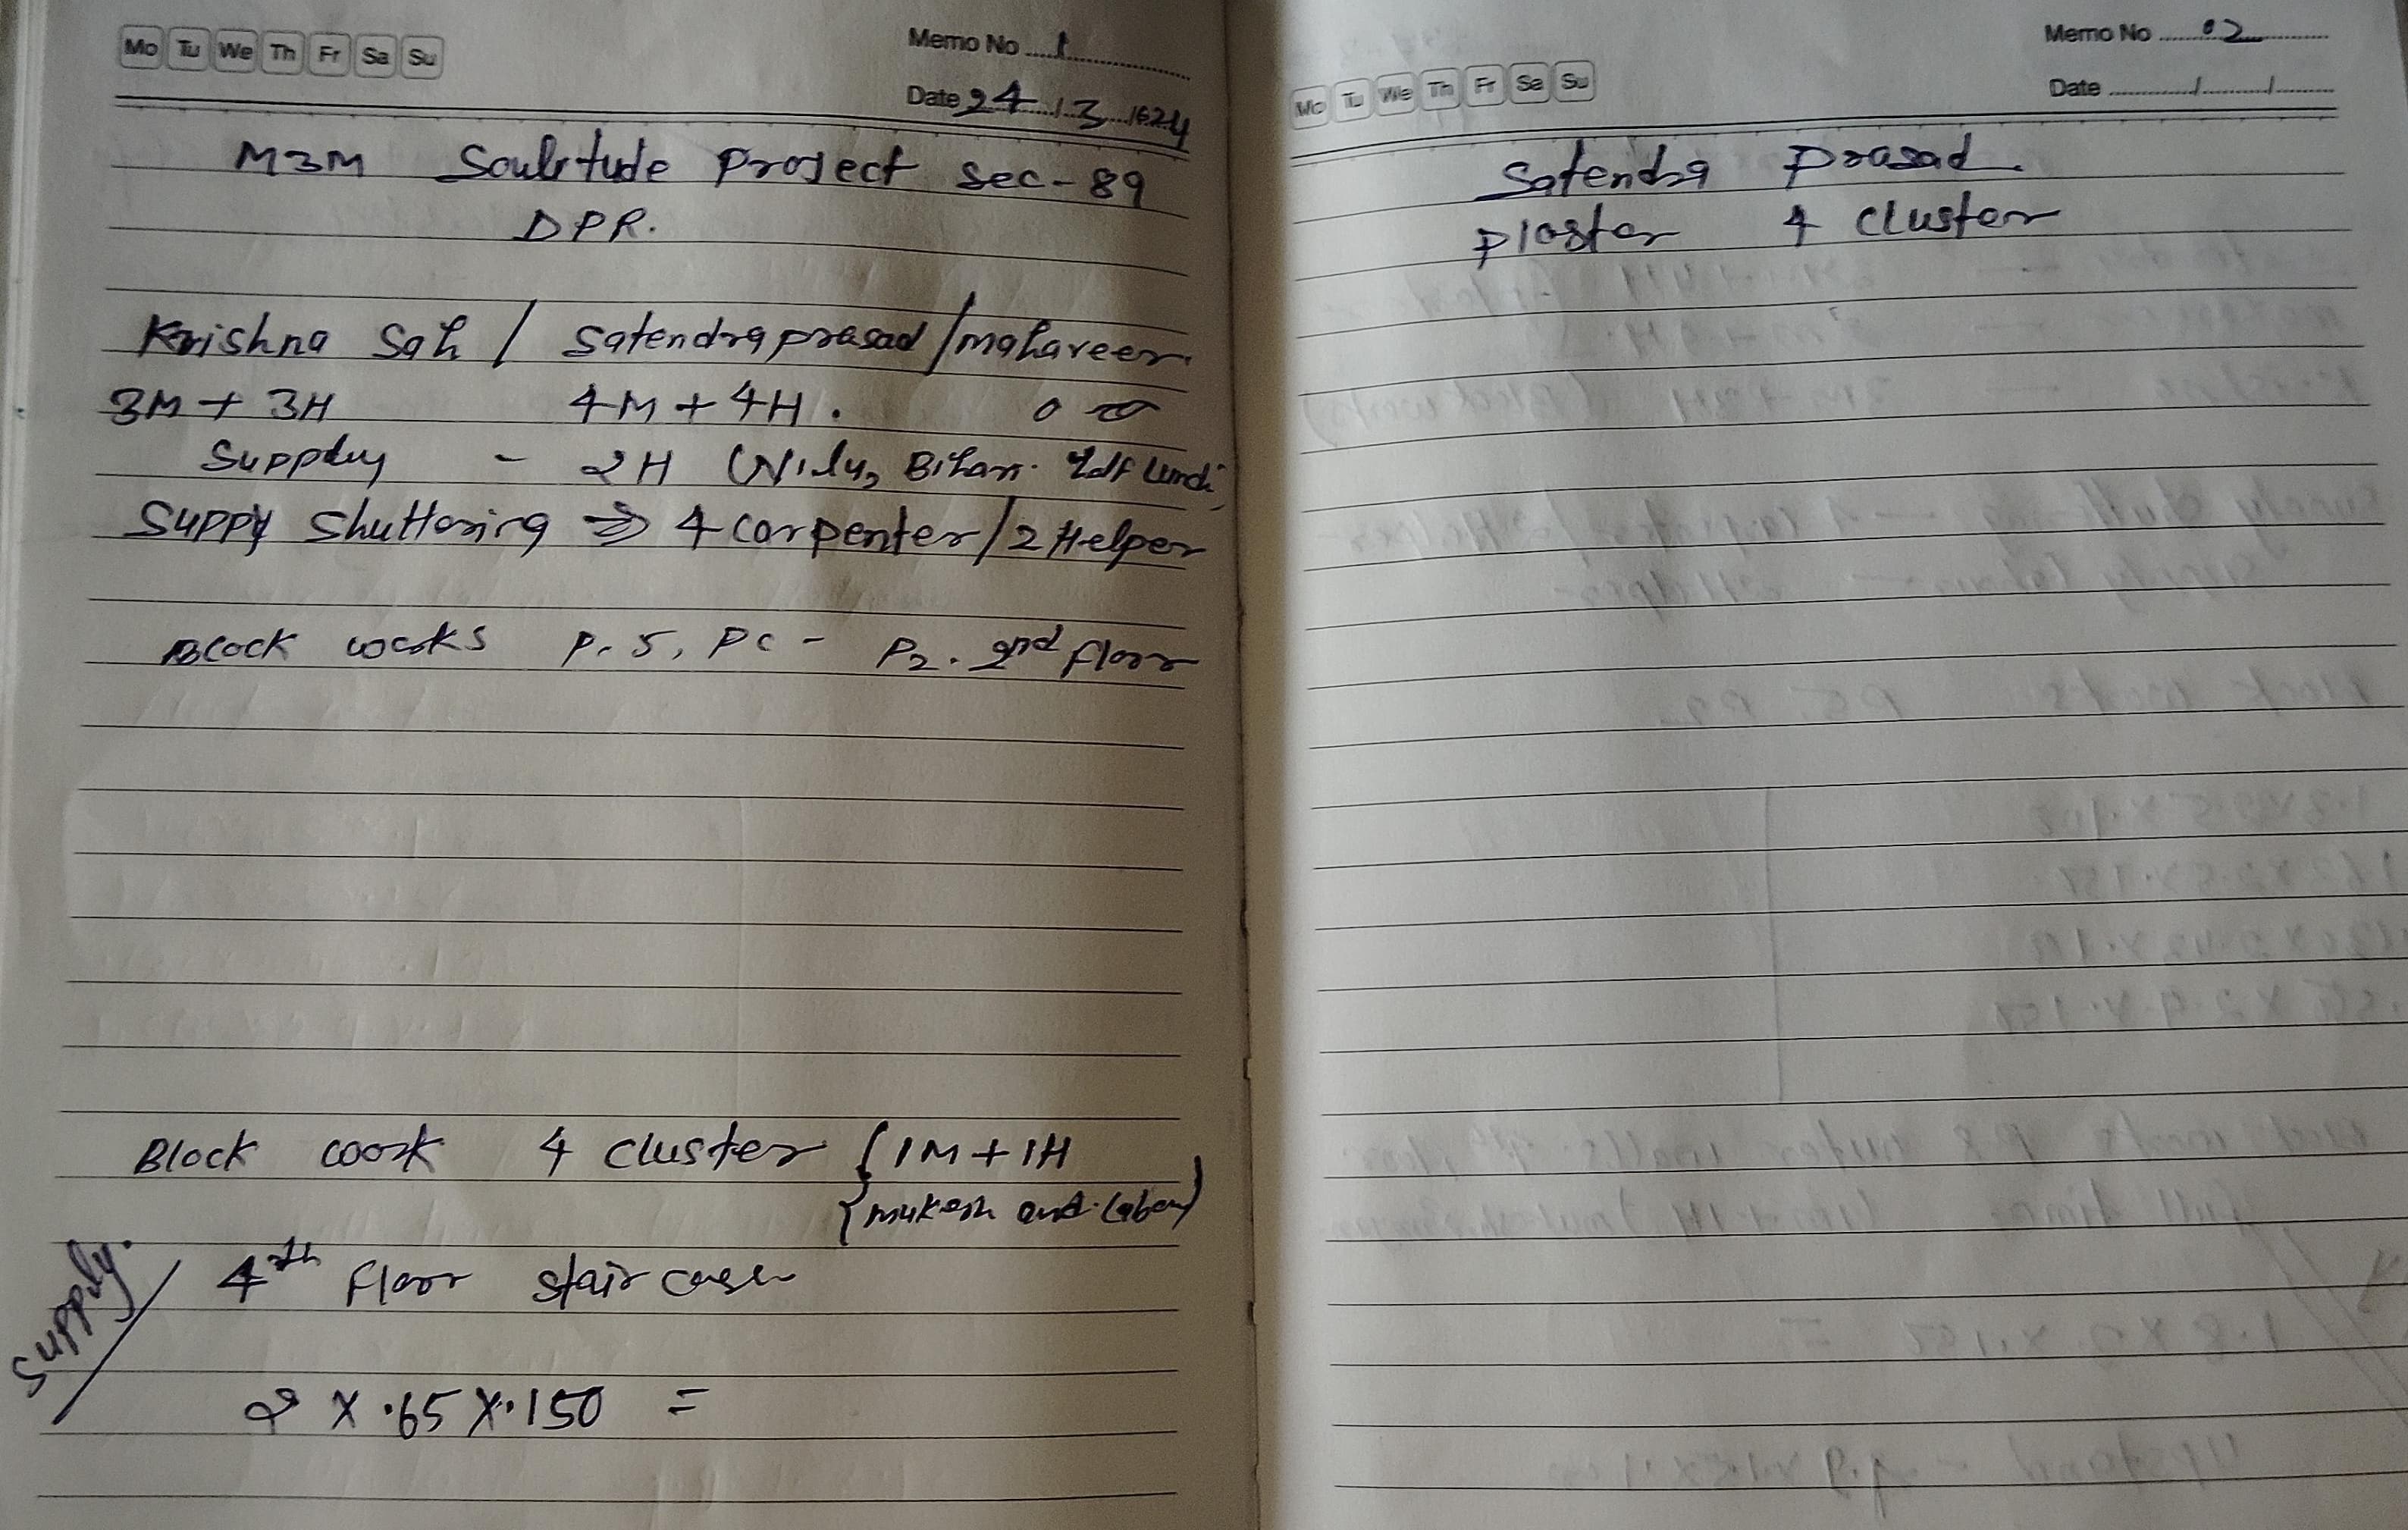 Mo Tu We Th Fr Sa Su
Memo No 1
Date 24/3/1624
M3M Soulitude Project Sec-89
DPR.
Krishna Sah / Satendra prasad / mahaveer
3M + 3H 4M + 4H. 0
Supply - 2H (Nilu, Bihari
Suppy Shuttering ⇒ 4 Carpenter/2 Helper
Block works P.5, PC - P2. 2nd floor
Block work 4 cluster {1M+1H
{mukesh and. Labour)
Supply. / 4th floor stair case
2 x .65 x .150 =
Memo No 02
Mo Tu We Th Fr Sa Su
Date / /
Satendra Prasad.
Plaster 4 Cluster